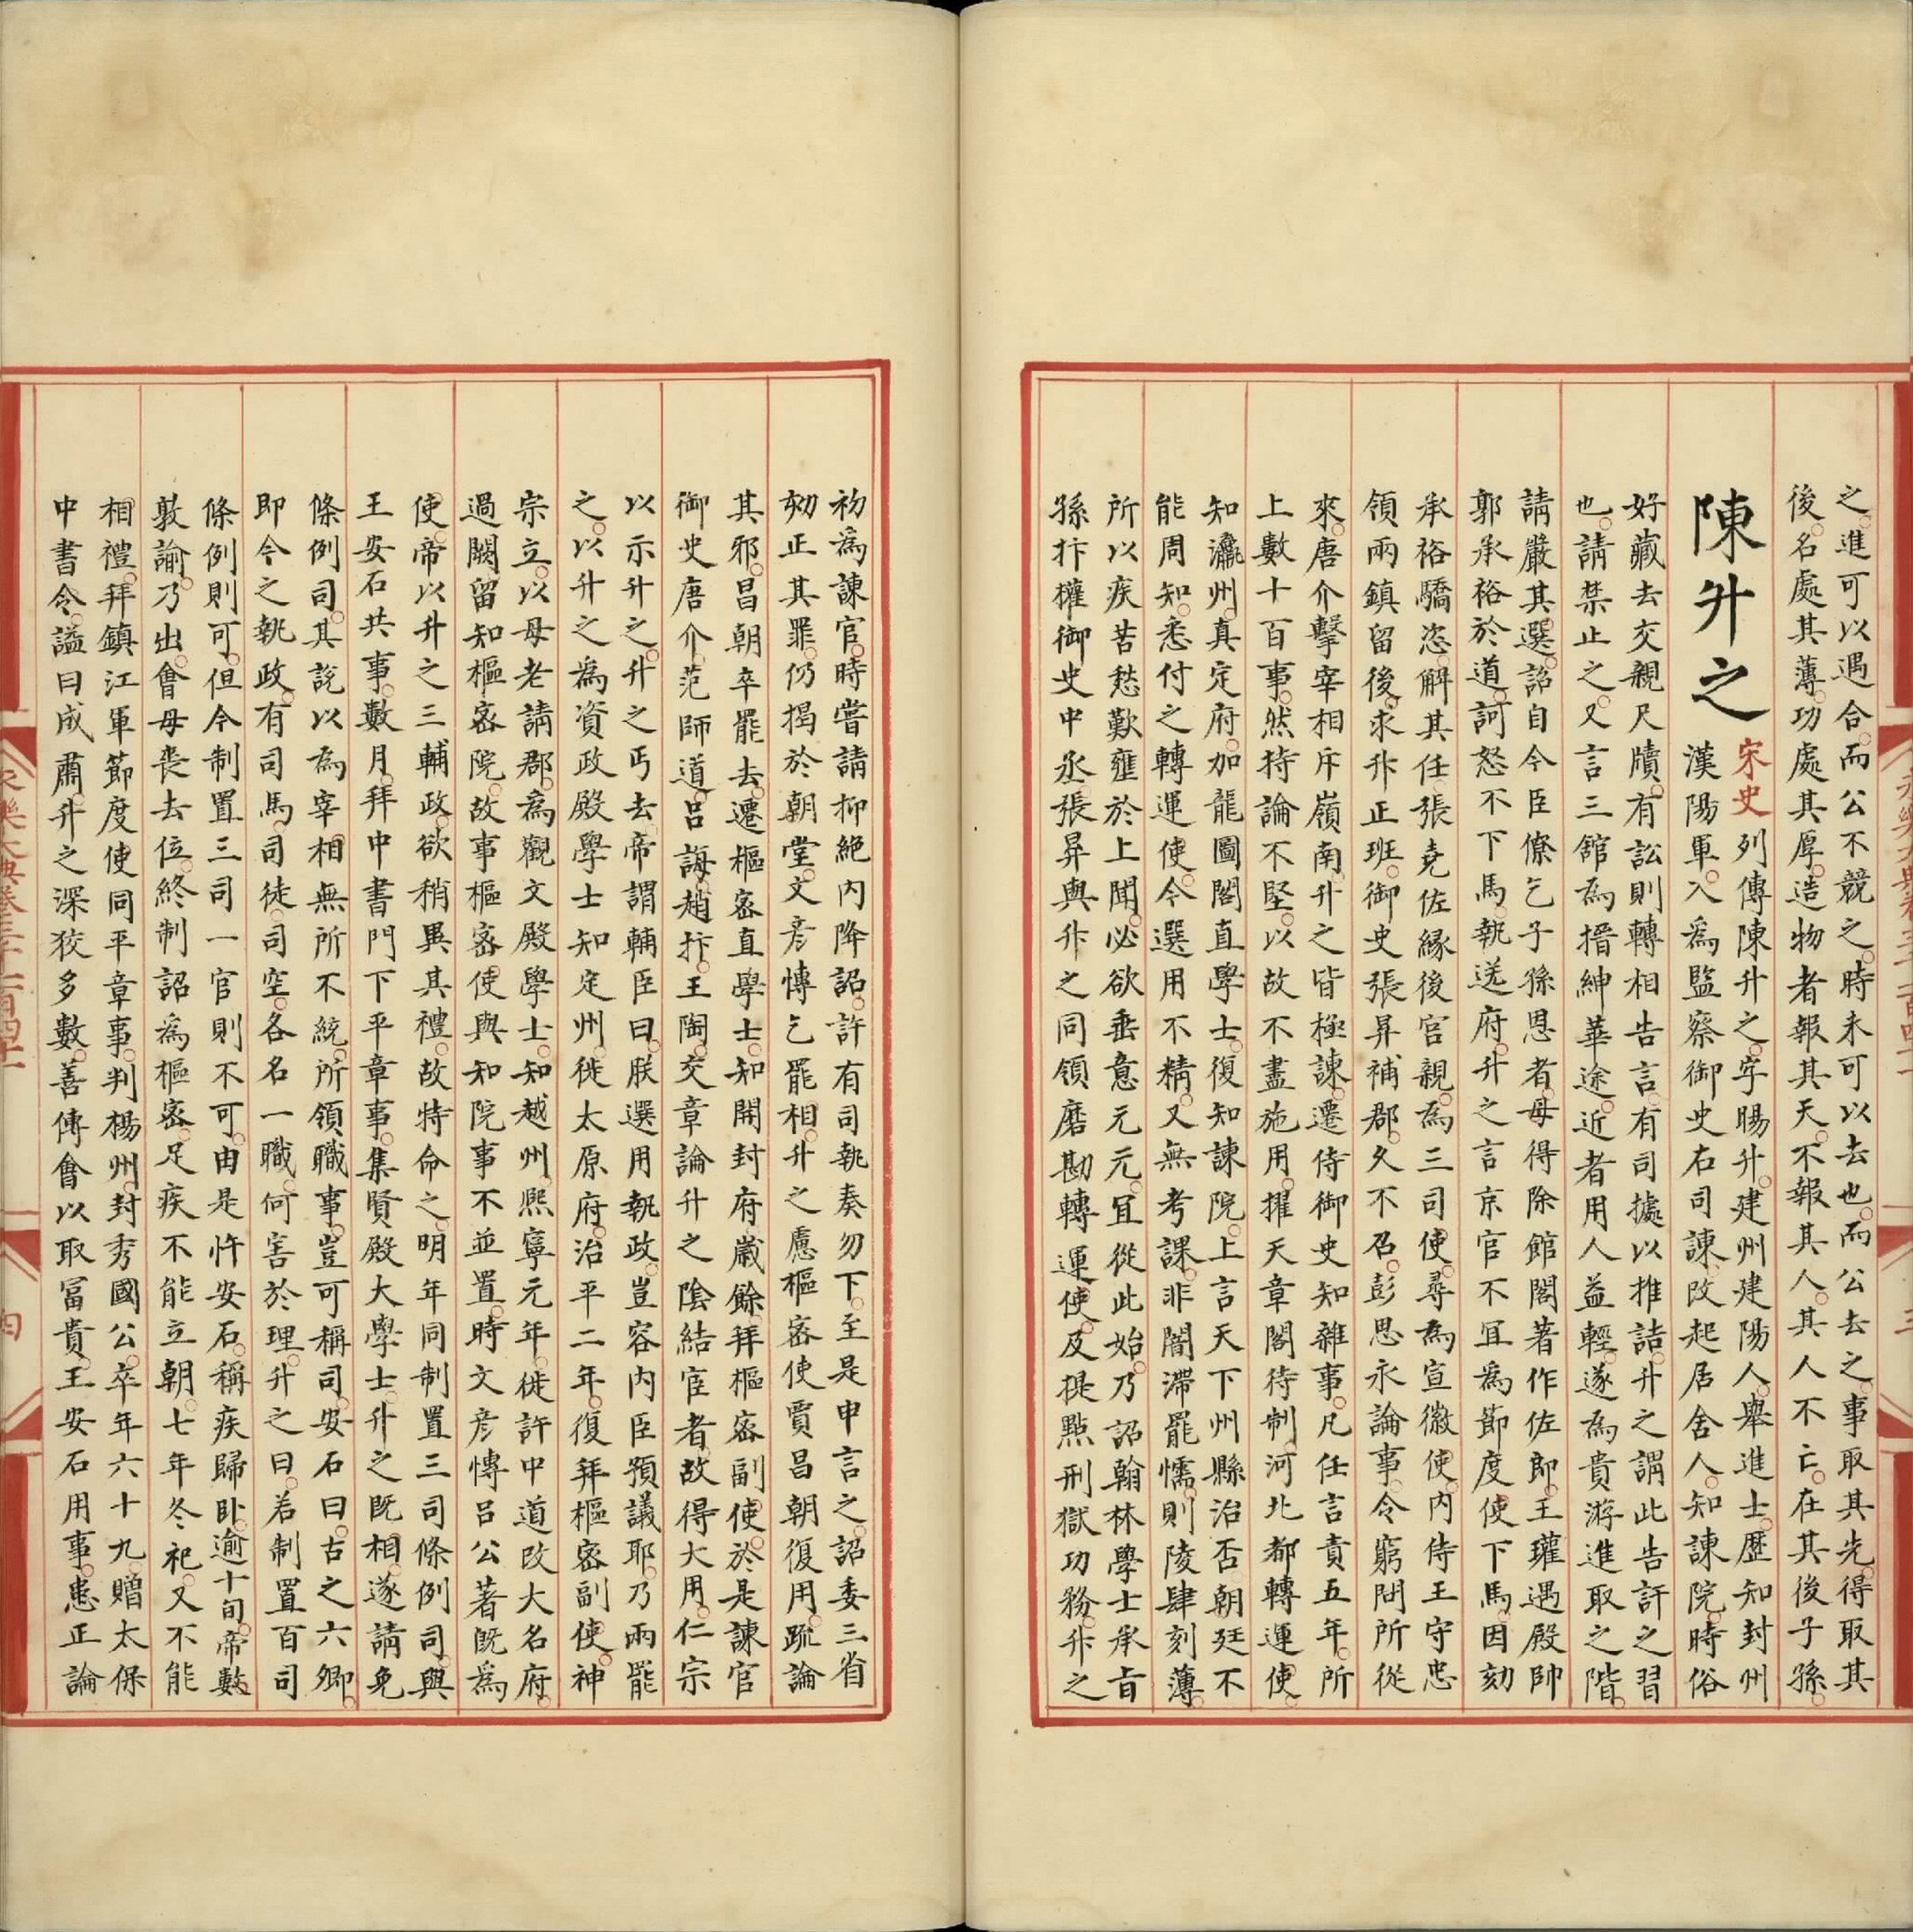 之進可以遇合而公不競之時未可以去也而公去之事取其先得取其
後名處其薄功處其厚造物者報其天不報其人其人不亡在其後子孫
陳升之
宋史列傳陳升之字暘升建州建陽人舉進士歷知封州
漢陽軍入爲監察御史右司諫改起居舍人知諫院時俗
好藏去交親尺牘有訟則轉相告言有司據以推詰升之謂此告訐之習
也請禁止之又言三館爲搢紳華途近者用人益輕遂爲貴游進取之階
請嚴其選詔自今臣僚乞子孫恩者毋得除館閣著作佐郎王瓘遇殿帥
郭承裕於道訶怒不下馬執送府升之言京官不宜爲節度使下馬因劾
承裕驕恣解其任張堯佐緣後宮親爲三司使尋爲宣徽使內侍王守忠
領兩鎮留後求升正班御史張昇補郡久不召彭思永論事令窮問所從
來唐介擊宰相斥嶺南升之皆極諫遷侍御史知雜事凡任言責五年所
上數十百事然持論不堅以故不盡施用擢天章閣待制河北都轉運使
知瀛州真定府加龍圖閣直學士復知諫院上言天下州縣治否朝廷不
能周知悉付之轉運使今選用不精又無考課非闇滯罷懦則陵肆刻薄
所以疾苦愁歎壅於上聞必欲垂意元元宜從此始乃詔翰林學士承旨
孫抃權御史中丞張昇與升之同領磨勘轉運使及提點刑獄功務升之
初爲諫官時嘗請抑絕內降詔許有司執奏勿下至是申言之詔委三省
劾正其罪仍揭於朝堂文彥博乞罷相升之慮樞密使賈昌朝復用疏論
其邪昌朝卒罷去遷樞密直學士知開封府歲餘拜樞密副使於是諫官
御史唐介范師道呂誨趙抃王陶交章論升之陰結宦者故得大用仁宗
以示升之升之丐去帝謂輔臣曰朕選用執政豈容內臣預議耶乃兩罷
之以升之爲資政殿學士知定州徙太原府治平二年復拜樞密副使神
宗立以母老請郡爲觀文殿學士知越州熙寧元年徙許中道改大名府
過闕留知樞密院故事樞密使與知院事不並置時文彥博呂公著旣爲
使帝以升之三輔政欲稍異其禮故特命之明年同制置三司條例司與
王安石共事數月拜中書門下平章事集賢殿大學士升之旣相遂請免
條例司其說以爲宰相無所不統所領職事豈可稱司安石曰古之六卿
即今之執政有司馬司徒司空各名一職何害於理升之曰若制置百司
條例則可但今制置三司一官則不可由是忤安石稱疾歸臥逾十旬帝數
敦諭乃出會母喪去位終制詔爲樞密足疾不能立朝七年冬祀又不能
相禮拜鎮江軍節度使同平章事判楊州封秀國公卒年六十九贈太保
中書令謚曰成肅升之深狡多數善傅會以取富貴王安石用事患正論